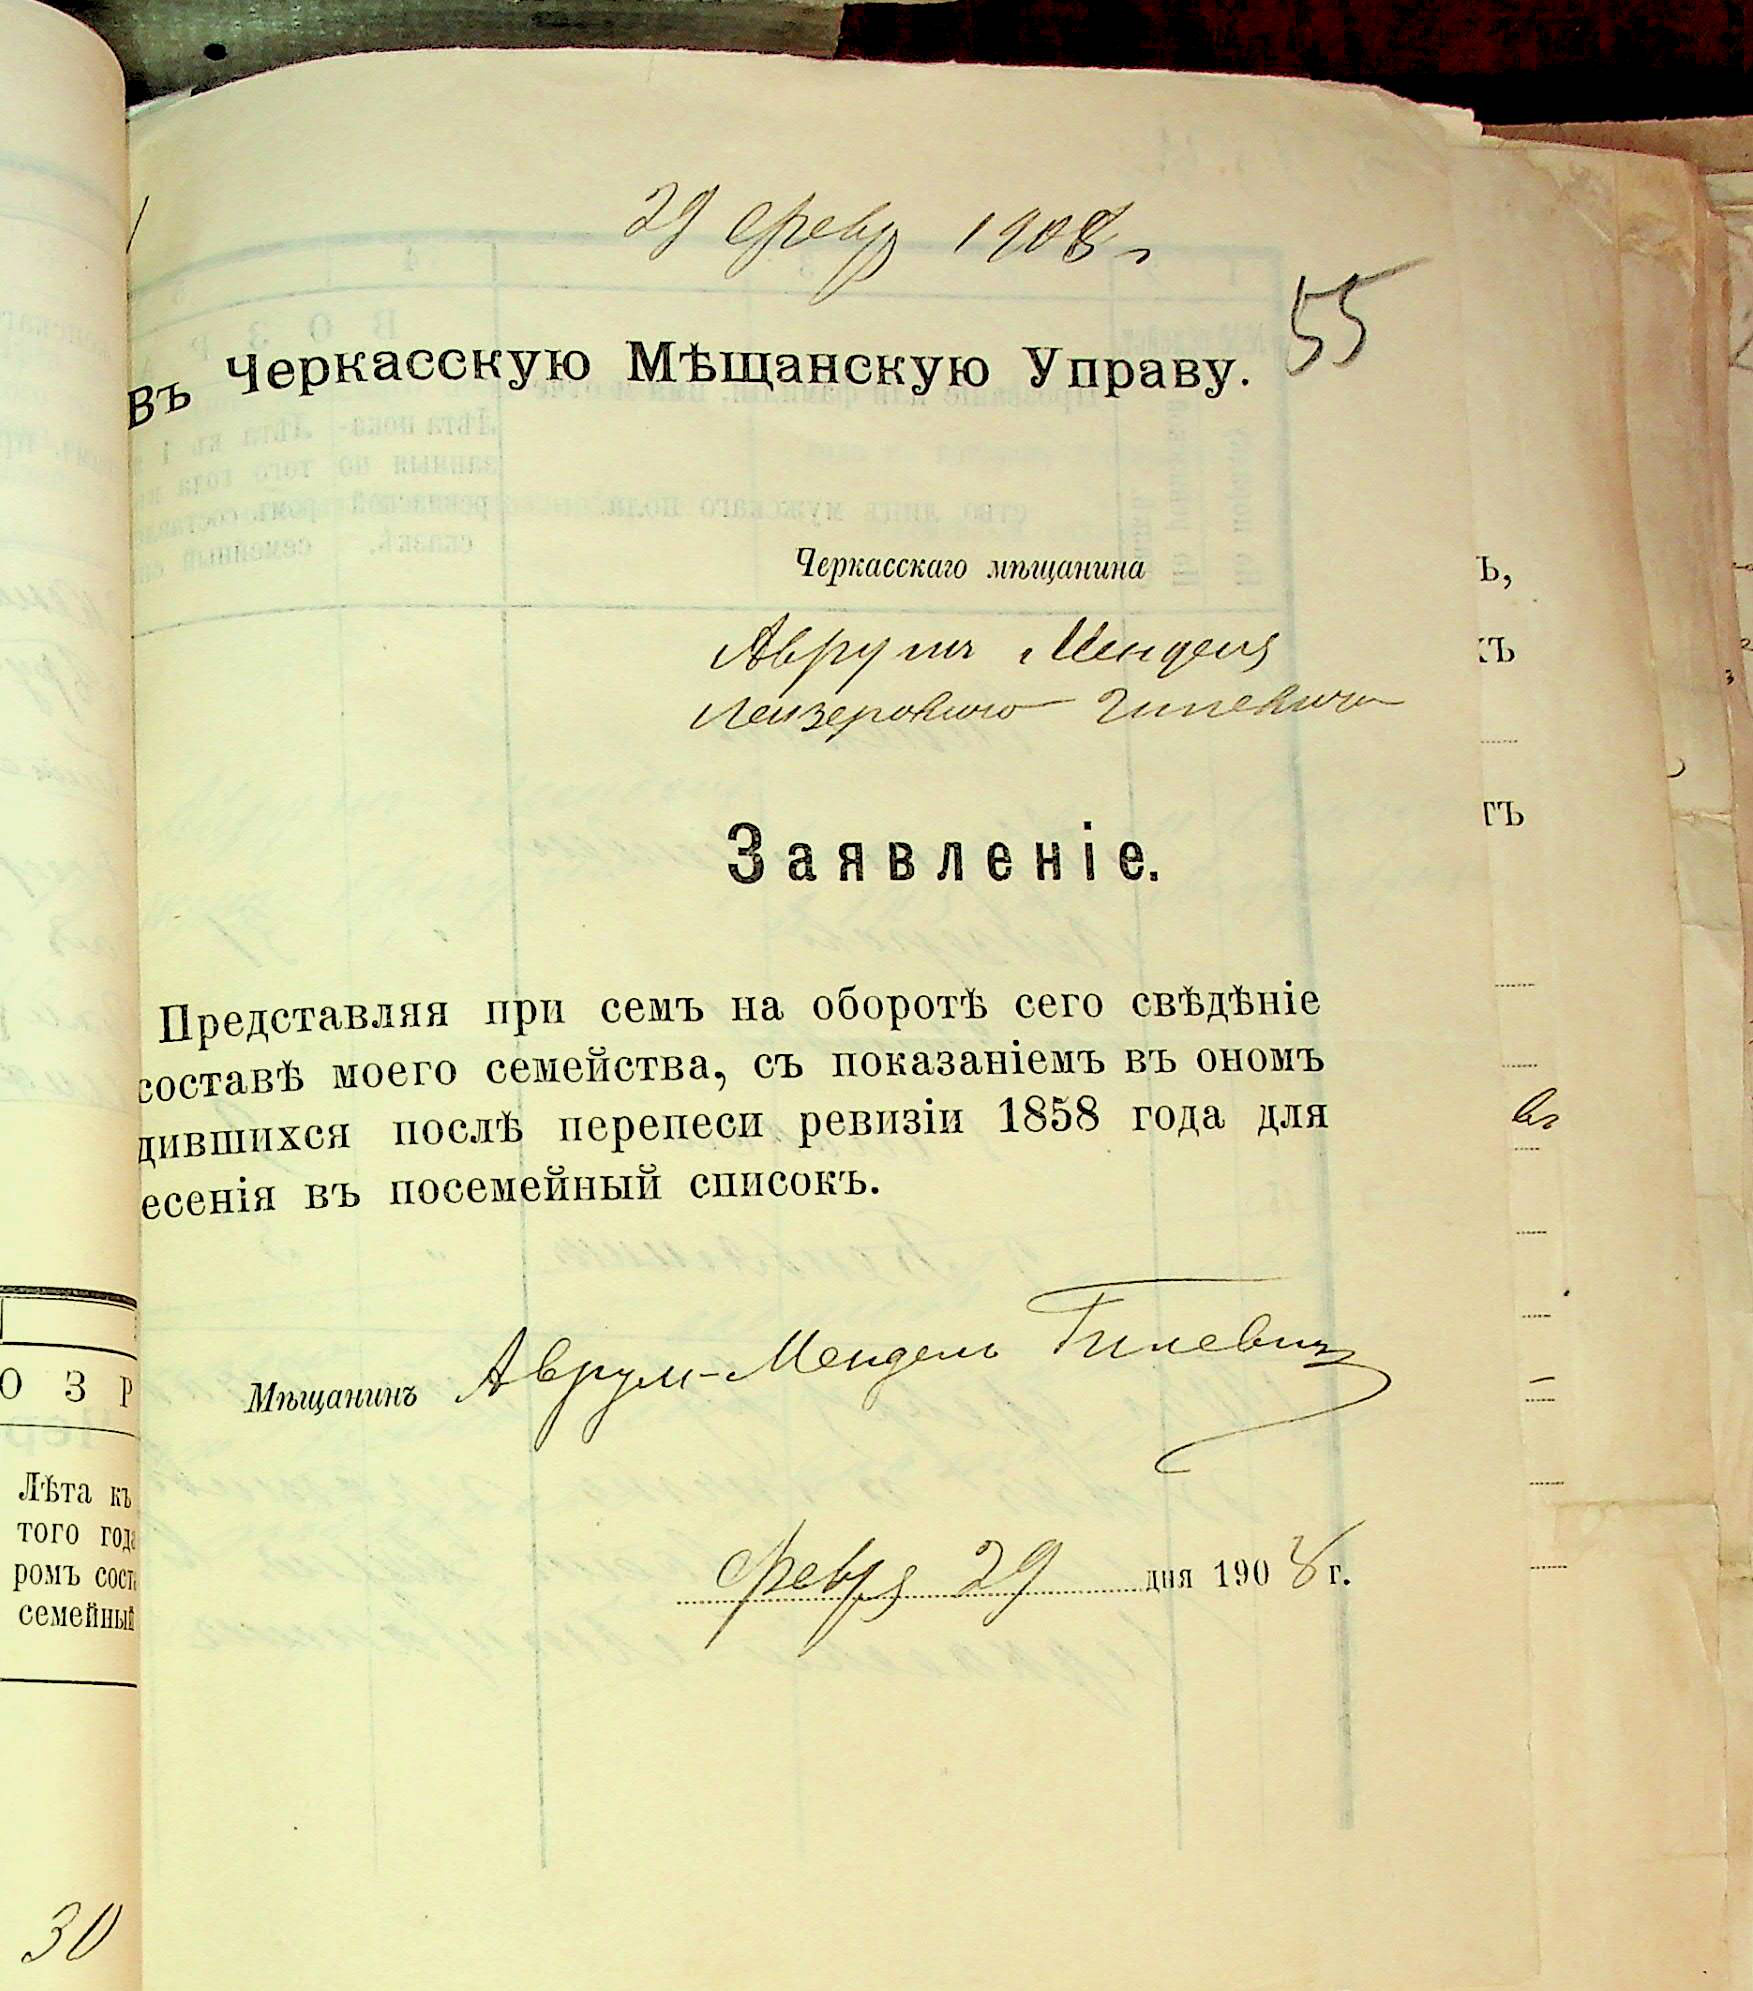 29 февр 1908 г
55
Въ Черкасскую Мѣщанскую Управу.
Черкасскаго мѣщанина
Аврумъ Менделя
Лейзеровича Гилевича
Заявленіе.
Представляя при семъ на оборотѣ сего свѣдѣніе
составѣ моего семейства, съ показаніемъ въ ономъ
дившихся послѣ перепеси ревизіи 1858 года для
есенія въ посемейный списокъ.
Мѣщанинъ Аврум-Мендель Гилевич
февр 29 дня 1908 г.
О З Р
Лѣта къ
того года
ромъ сост
семейный
30
ь,
ъ
тъ